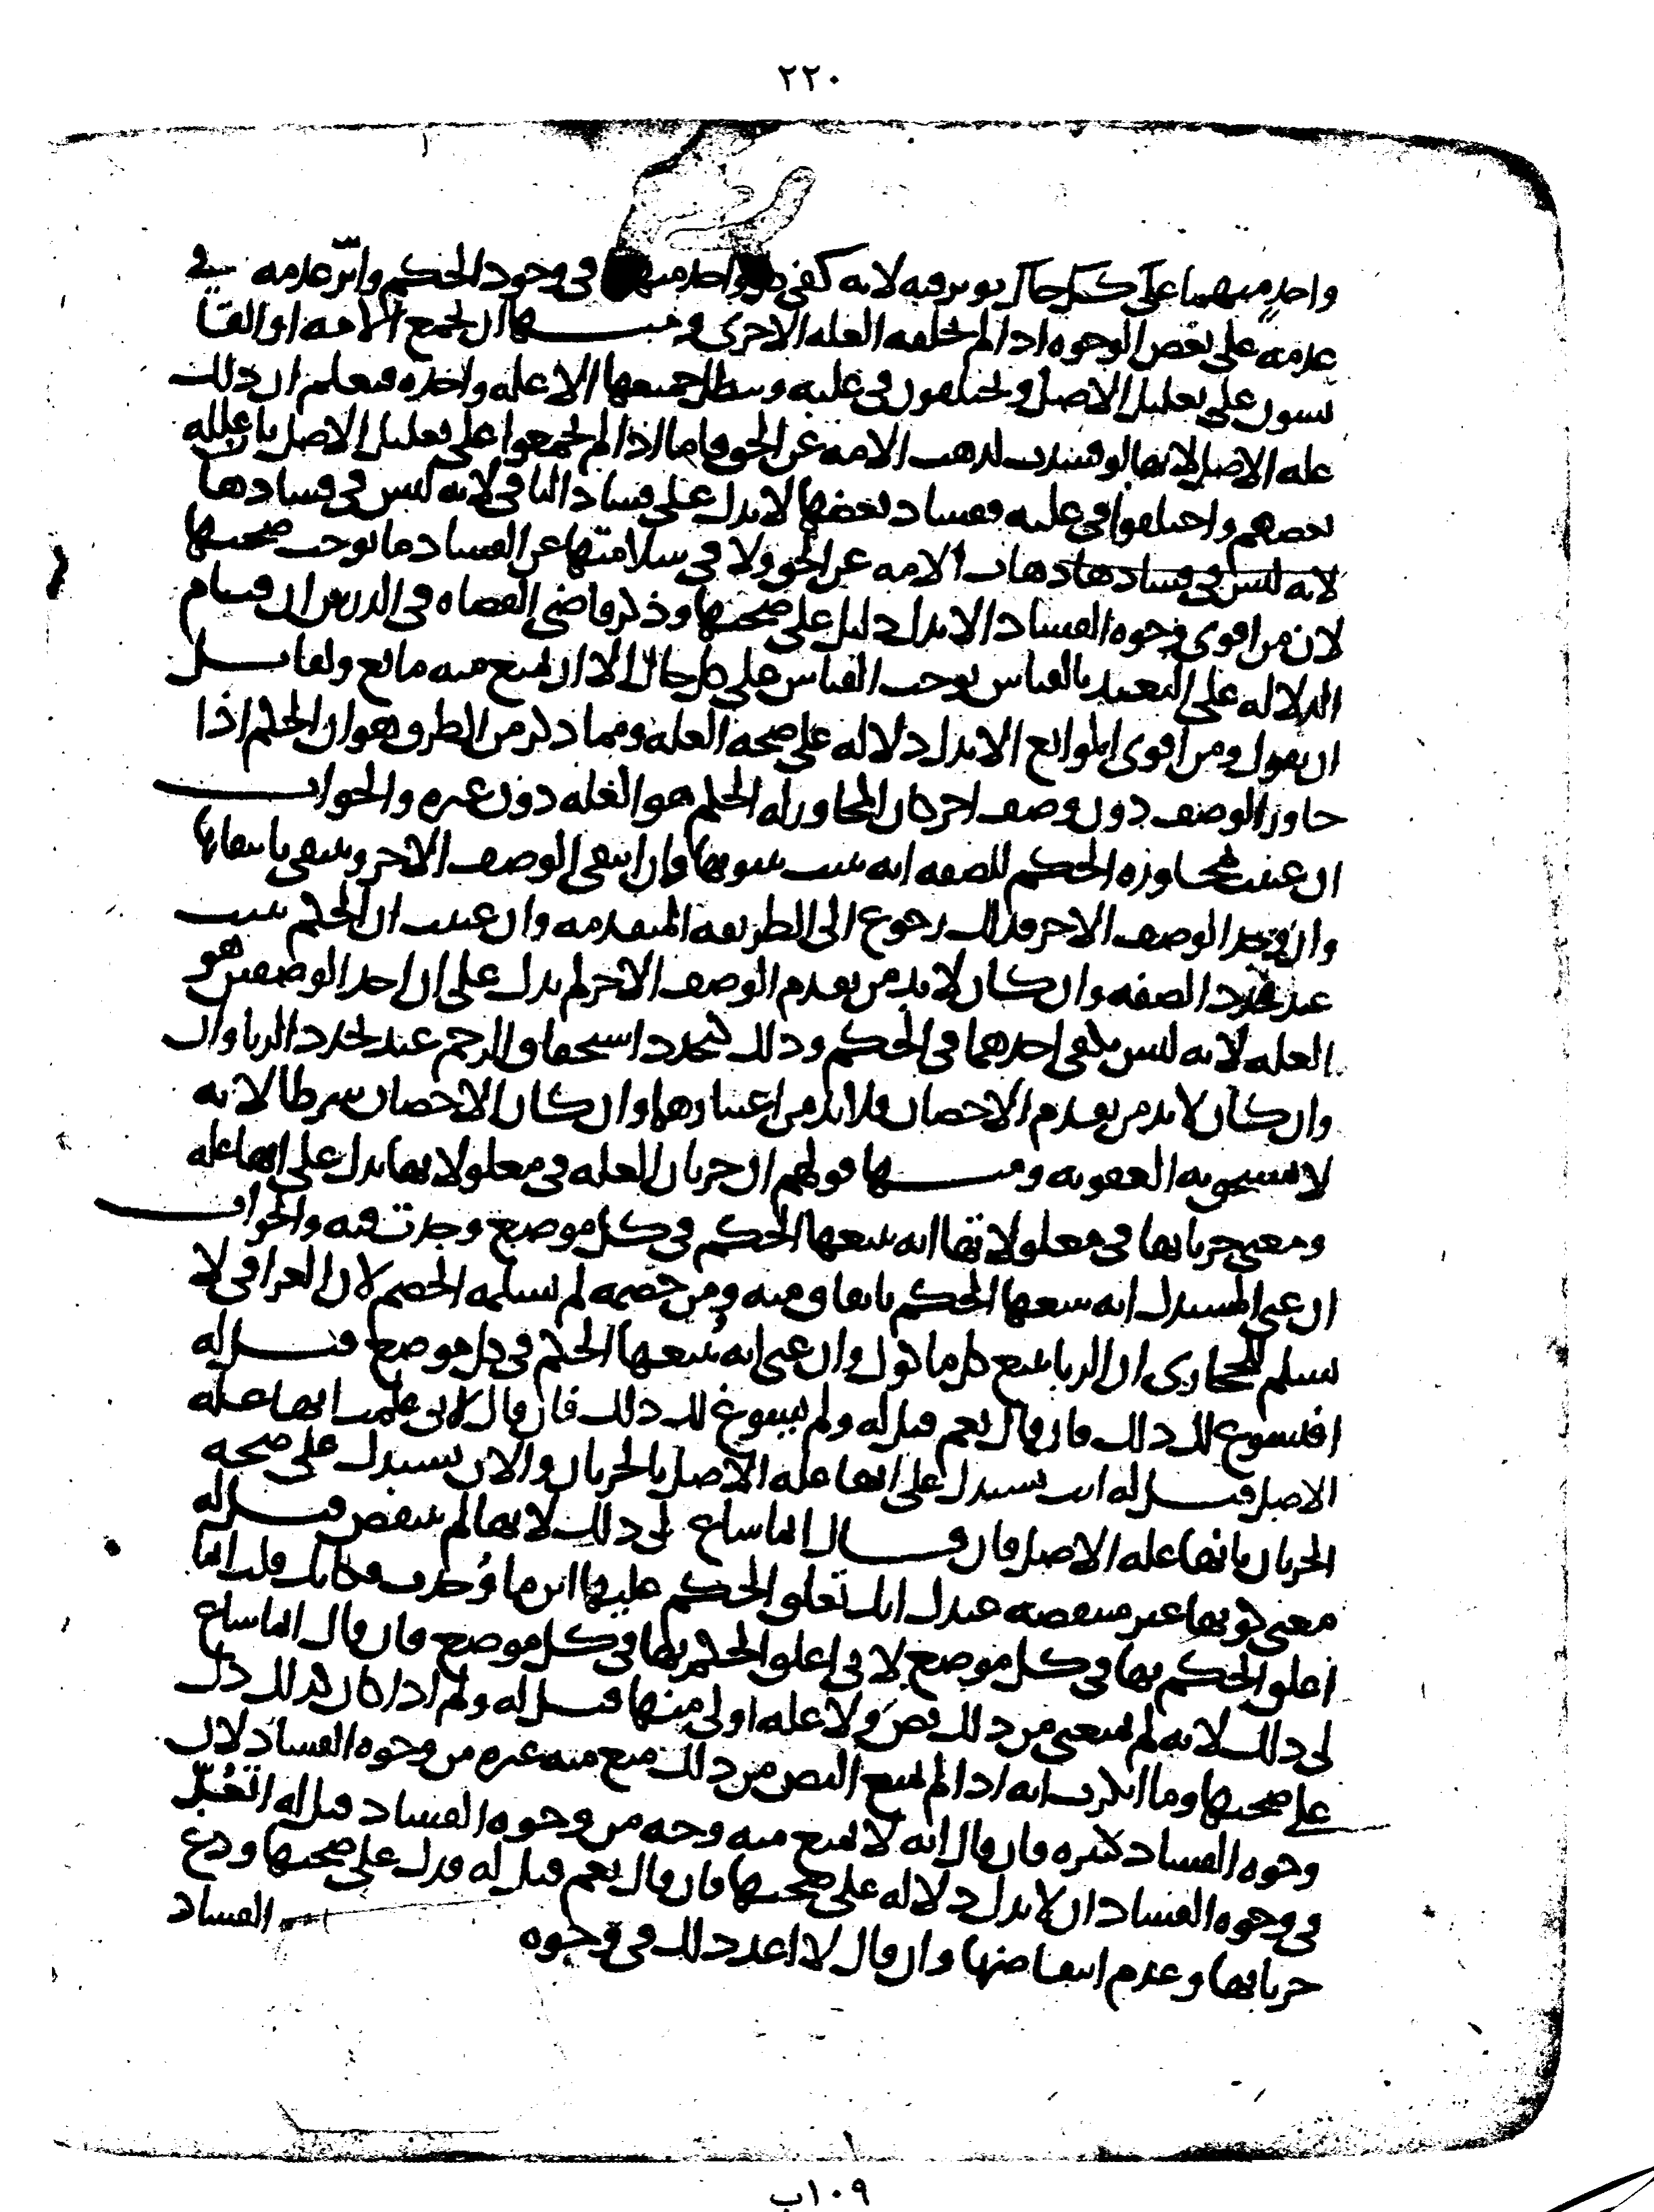 ٢٢٠
واحد منهما على كل حال يوثر فيه لانه كفى واحد منهما في وجود الحكم واثر عدمه في
عدمه على بعض الوجوه اذا لم تخلفه العله الاخرى ومنها ان تجمع الامه او القا
يسون على تعليل الاصل ويختلفون في علته وتبطل جميعها الا عله واحده فيعلم ان ذلك
عله الاصل لانها لو فسدت لذهبت الامه عن الحق فاما اذا لم يجمعوا على تعليل الاصل بل علله
بعضهم واختلفوا في علته ففساد بعضها لا يدل على فساد الباقي لانه ليس في فسادها
لانه ليس في فسادها ذهاب الامه عن الحق ولا في سلامتها عن الفساد ما يوجب صحتها
لان من اقوى وجوه الفساد الا يدل دليل على صحتها وذكر قاضي القضاه في الدرس ان قيام
الدلاله على التعبد بالقياس يوجب القياس على كل حال الا ان يمنع منه مانع ولقايل
ان يقول ومن اقوى الموانع الا يدل دلاله على صحه العله ومما ذكر من الطرق هو ان الحكم اذا
جاور الوصف دون وصف اخر كان المجاور له الحكم هو العله دون غيره والجواب
ان عنيت بمجاوزه الحكم للصفه انه يثبت بثبوتها وان انتفى الوصف الاخر وينتفي بانتفائها
وان وجد الوصف الاخر فذلك رجوع الى الطريقه المتقدمه وان عنيت ان الحكم يثبت
عند تجدد الصفه وان كان لا بد من تقدم الوصف الاخر لم يدل على ان احد الوصفين هو
العله لانه ليس يكفي احدهما في الحكم وذلك كتجدد استحقاق الرجم عند تجدد الزنا وان
وان كان لا بد من تقدم الاحصان فلا بد من اعتبارهما وان كان الاحصان شرطا لانه
لا تستحق به العقوبه ومنها قولهم ان جريان العله في معلولاتها يدل على انها عله
ومعنى جريانها في معلولاتها انه يتبعها الحكم في كل موضع وجدت فيه والجواب
ان عنى المستدل انه يتبعها الحكم باتفاق منه ومن خصمه لم يسلمه الخصم لان العراقي لا
يسلم للحجازي ان الربا يتبع كل ماكول وان عنى انه يتبعها الحكم في كل موضع قيل له
افيسوغ لك ذلك فان قال نعم قيل له ولم يسوغ لك ذلك فان قال لاني علمت انها عله
الاصل قيل له انت تستدل على انها عله الاصل بالجريان والان تستدل على صحه
الجريان بانها عله الاصل فان قال انما ساغ لي ذلك لانها لم تنتقض قيل له
معنى كونها غير منتقضه عندك انك تعلق الحكم عليها اين ما وُجدت فكانك قلت انما
اعلق الحكم بها في كل موضع لاني اعلق الحكم بها في كل موضع فان قال انما ساغ
لي ذلك لانه لم يمنعني من ذلك نص ولا عله اولى منها قيل له ولم اذا كان كذلك دل
على صحتها وما انكرت انه اذا لم يمنع النص من ذلك منع منه غيره من وجوه الفساد لان
وجوه الفساد كثيره فان قال انه لا يمنع منه وجه من وجوه الفساد قيل له اتعُدّ
في وجوه الفساد ان لا يدل دلاله على صحتها فان قال نعم قيل له فدل على صحتها ودع
جريانها وعدم انتقاضها وان قال لا اعد ذلك في وجوه
الفساد
١٠٩ب